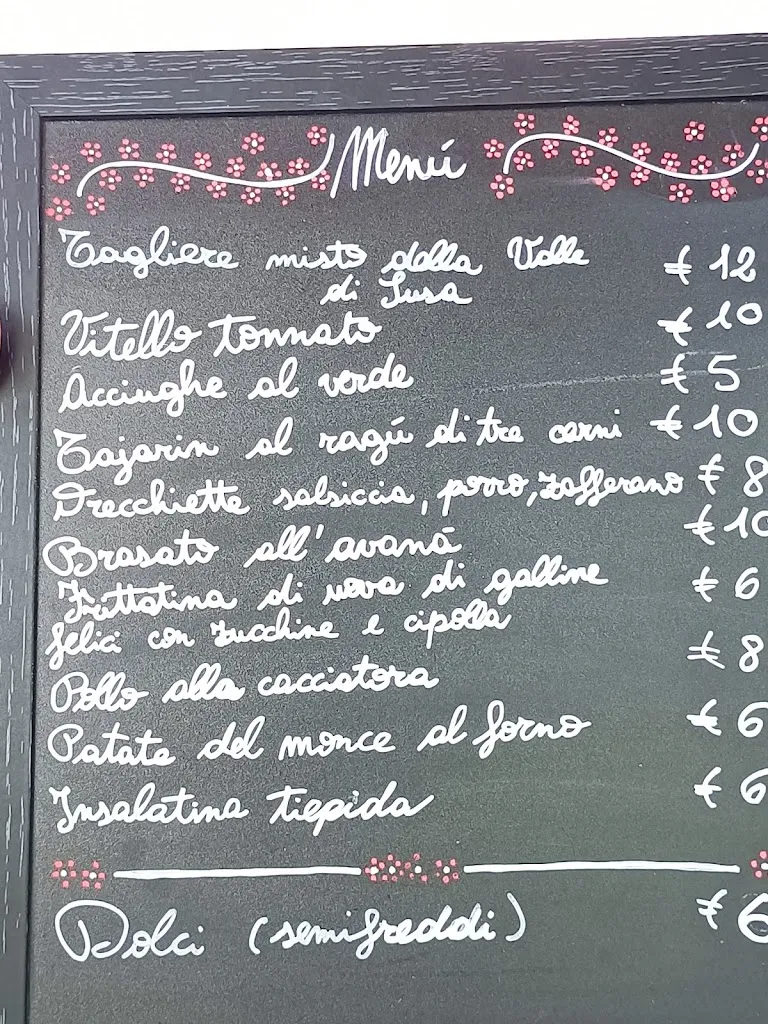 Menú
Tagliere misto della Valle € 12
di Susa
Vitello tonnato € 10
Acciughe al verde € 5
Tajarin al ragú di tre carni € 10
Orecchiette salsiccia, porro, zafferano € 8
Brasato all'avaná € 10
Frittatina di uova di galline € 6
felici con zucchine e cipolla
Pollo alla cacciatora € 8
Patate del monce al forno € 6
Insalatina tiepida € 6
Dolci (semifreddi) € 6